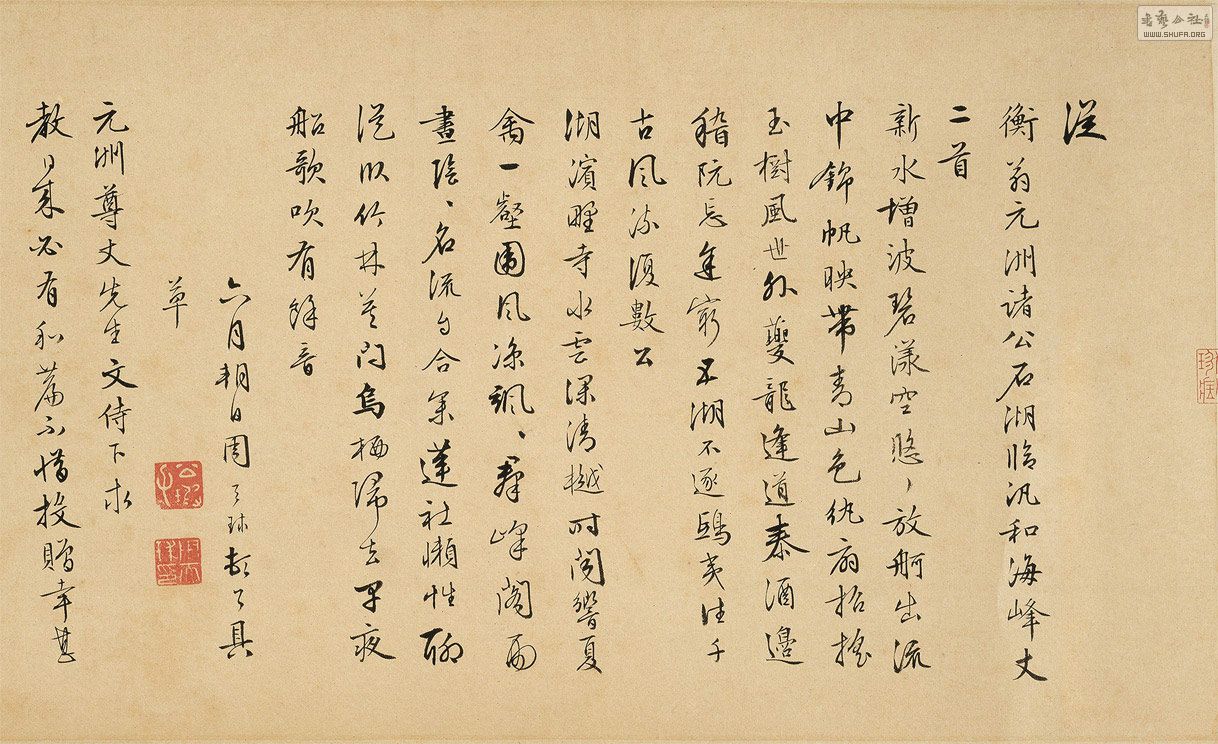 從
衡翁元洲諸公石湖臨汎和海峰丈
二首
新水增波碧漾空悠〻放舸出流
中錦帆映帶青山色紈扇招搖
玉樹風世外夔龍逢道泰酒邊
稽阮忘年窮五湖不逐鴟夷往千
古風流復數公
湖濱野寺水雲深清樾時聞響夏
禽一壑圍風涼颯〻群峰閣雨
晝陰〻名流自合容蓮社懶性聊
從附竹林莫問烏栖歸去早夜
船歌吹有餘音
六月朔日周天球頓首具
草
元洲尊丈先生文侍下求
教日來必有和篇不惜投贈幸甚
公瑕
書藝公社
WWW.SHUFA.ORG